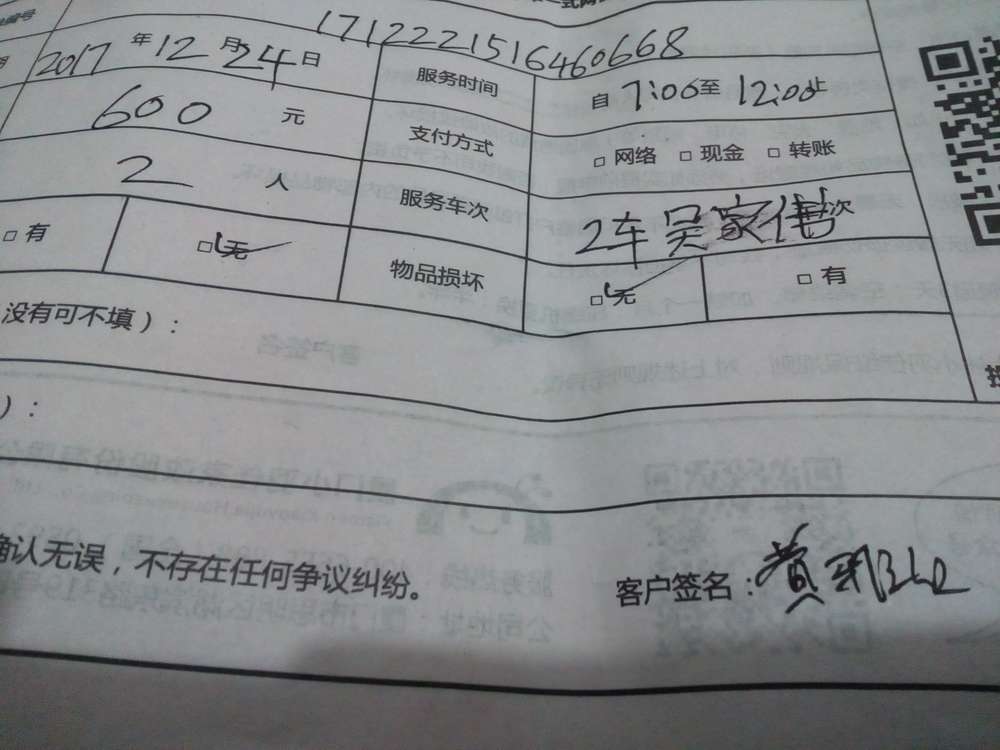 编号 1712221516460668
2017年12月24日 服务时间 自7:00至12:00止
600元 支付方式 □网络 □现金 □转账
2人 服务车次 2车吴家 次
□有 □无 物品损坏 □无 □有
没有可不填）：
）：
确认无误，不存在任何争议纠纷。 客户签名：黄